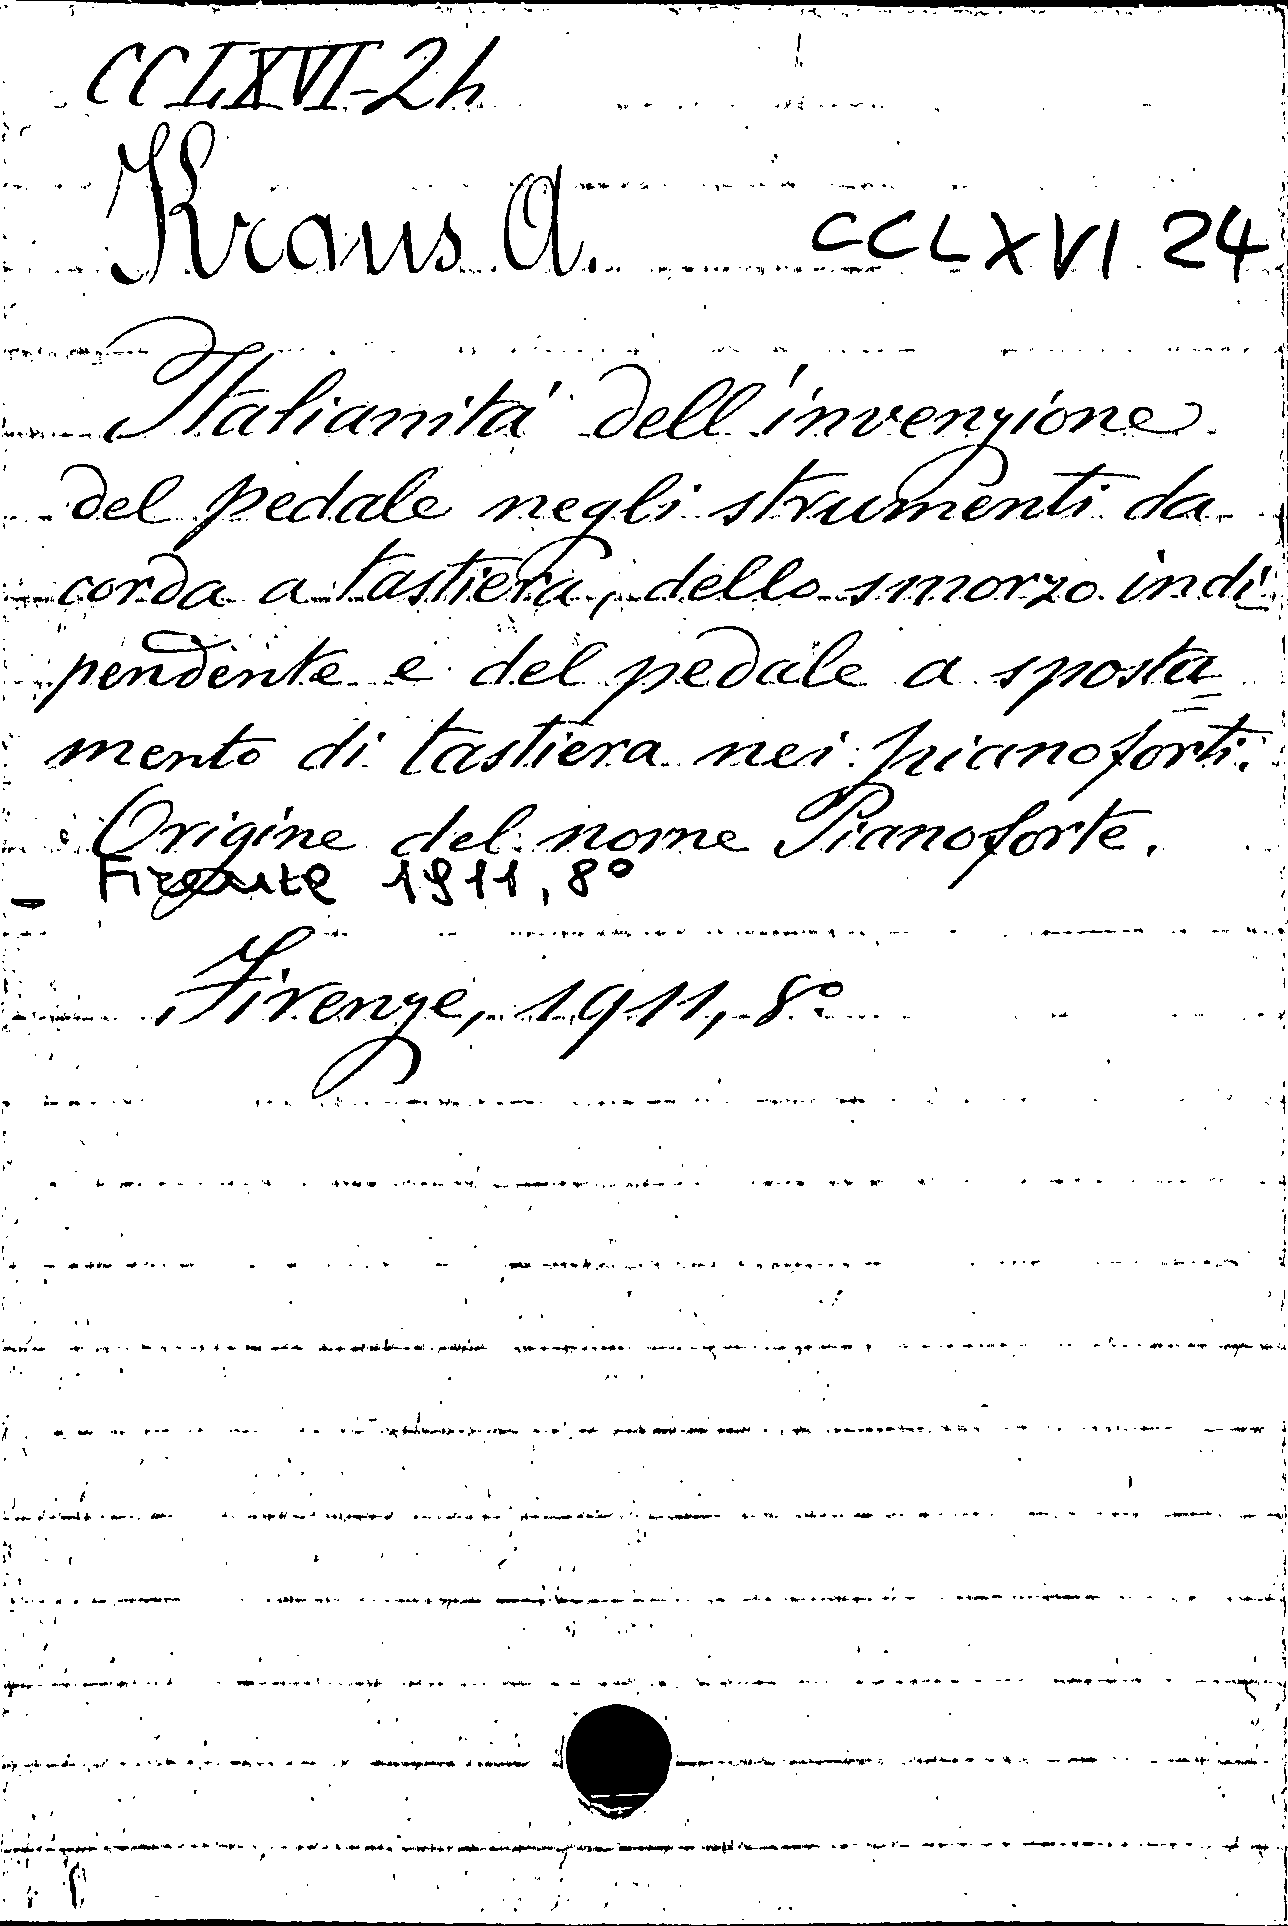 CCLXVI-24
Kraus A. CCLXVI 24
Italianitá dell'invenzione
del pedale negli strumenti da
corda a tastiera, dello smorzo indi
pendente e del pedale a sposta=
mento di tastiera nei pianoforti.
Origine del nome Pianoforte.
_ Firenze 1911, 8º
Firenze, 1911, 8º